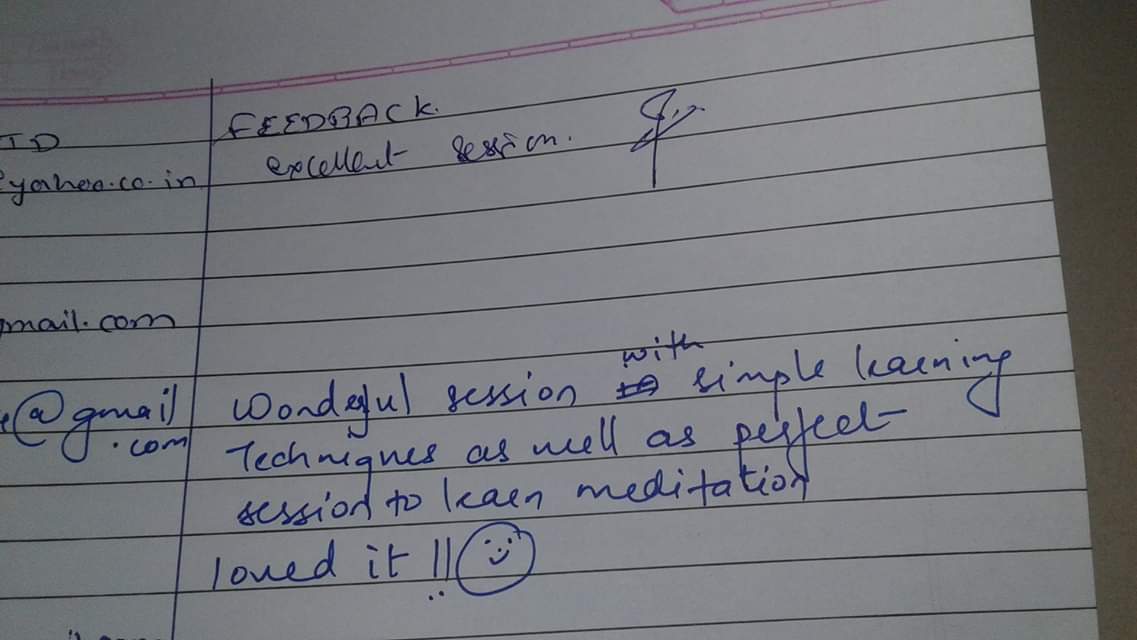 ID FEEDBACK.
@yahoo.co.in excellent session.
gmail.com
with
@gmail Wonderful session simple learning
.com Techniques as well as perfect
session to learn meditation
loved it !!